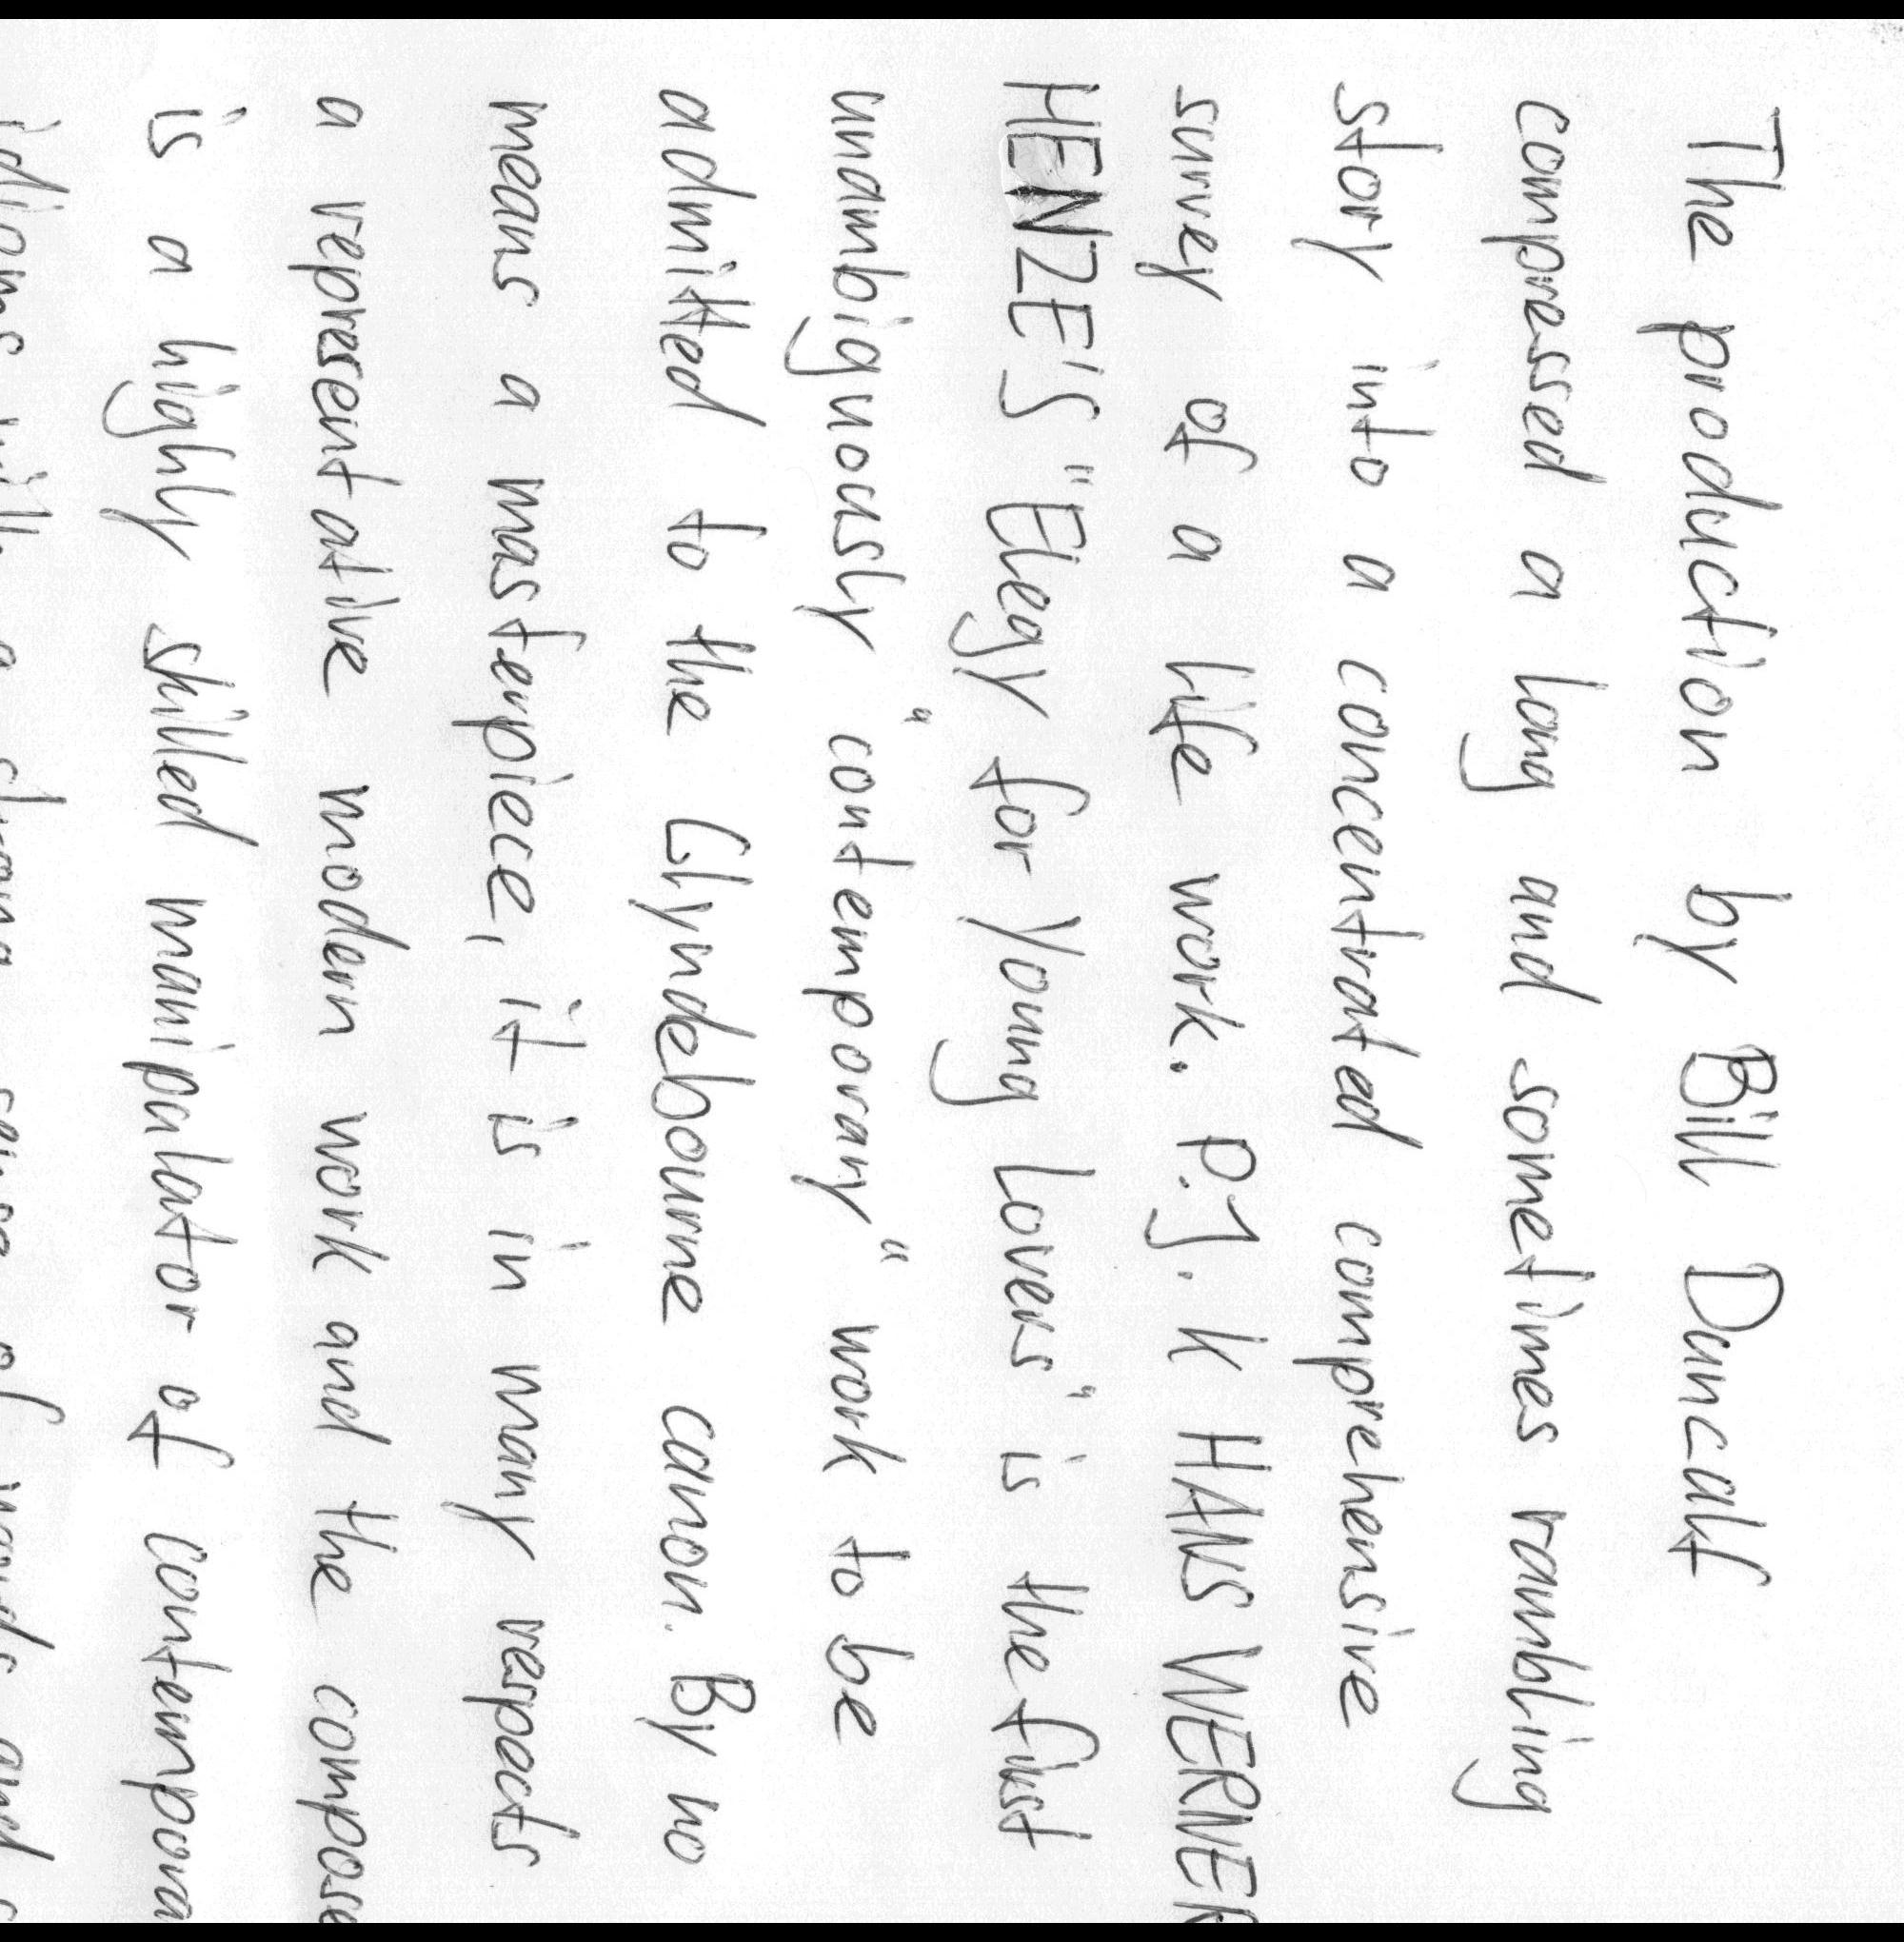 The production by Bill Duncalf
compressed a long and sometimes rambling
story into a concentrated comprehensive
survey of a life work. P.J.K HANS WERNER
HENZE'S "Elegy for Young Lovers" is the first
unambiguously "contemporary" work to be
admitted to the Glyndebourne canon. By no
means a masterpiece, it is in many respects
a representative modern work and the compose
is a highly skilled manipulator of contempora
idioms with a strong sense of words and